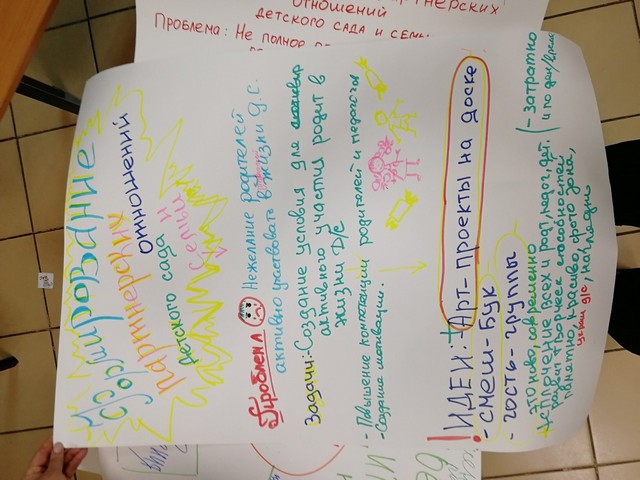 отношений
детского сада и семьи
Проблема: Не полное
Формирование
партнерских
отношений
детского сада и
семьи
Проблема Нежелание родителей
активно участвовать в жизни д.с.
Задачи: Создание условия для
активного участия родит в
жизни Д/с
- Повышение компетенции родителей и педагогов
- Создание мотивации.
! ИДЕИ: + Арт-проекты на доске
- смеш-Бук
- гость-группы
Это ново, современно
понятно, красиво, фото зона,
украш д/с, наглядно
- затратно